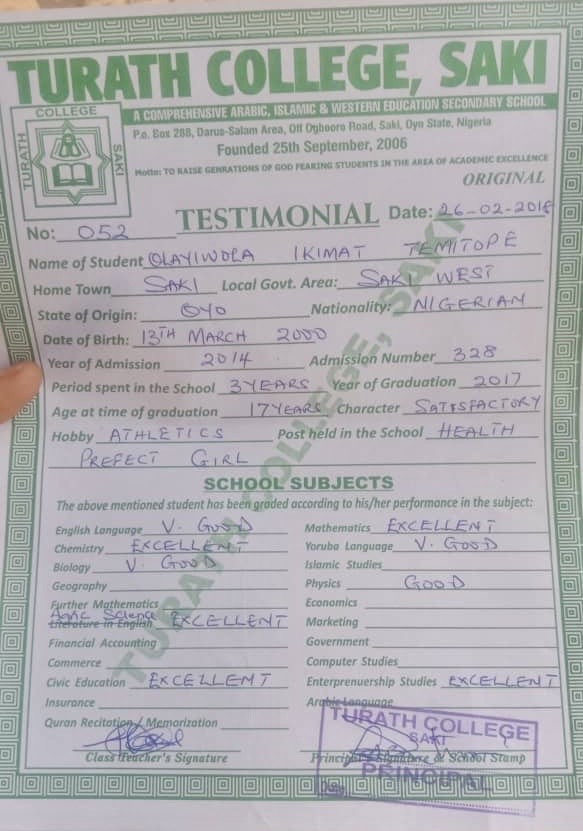 TURATH COLLEGE, SAKI
A COMPREHENSIVE ARABIC, ISLAMIC & WESTERN EDUCATION SECONDARY SCHOOL
P.o. Box 288, Darus-Salam Area, Off Ogbooro Road, Saki, Oyo State, Nigeria
Founded 25th September, 2006
Motto: TO RAISE GENRATIONS OF GOD FEARING STUDENTS IN THE AREA OF ACADEMIC EXCELLENCE
COLLEGE
TURATH
SAKI
ORIGINAL
No: 052 TESTIMONIAL Date: 26-02-2018
Name of Student OLAYIWOLA IKIMAT TEMITOPE
Home Town SAKI Local Govt. Area: SAKI WEST
State of Origin: OYO Nationality: NIGERIAN
Date of Birth: 13TH MARCH 2000
Year of Admission 2014 Admission Number 328
Period spent in the School 3 YEARS Year of Graduation 2017
Age at time of graduation 17 YEARS Character SATISFACTORY
Hobby ATHLETICS Post held in the School HEALTH
PREFECT GIRL
SCHOOL SUBJECTS
The above mentioned student has been graded according to his/her performance in the subject:
English Language V. GOOD Mathematics EXCELLENT
Chemistry EXCELLENT Yoruba Language V. GOOD
Biology V. GOOD Islamic Studies
Geography Physics GOOD
Further Mathematics Economics
Agric Science
Literature in English EXCELLENT Marketing
Financial Accounting Government
Commerce Computer Studies
Civic Education EXCELLENT Enterprenuership Studies EXCELLENT
Insurance Arabic Language
Quran Recitation/Memorization
Class Teacher's Signature Principal's Signature & School Stamp
TURATH COLLEGE
SAKI
PRINCIPAL
Date
TURATH COLLEGE, SAKI